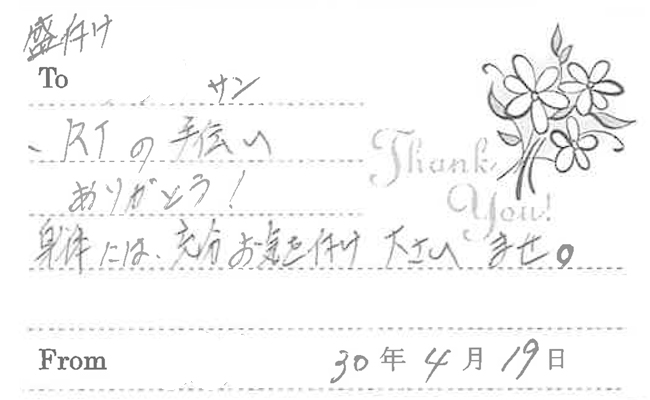 盛付け
To
サン
、RTの手伝い
ありがとう！
Thank
You!
身体には、充分お気を付け 下さい ませ。
From
30年4月19日